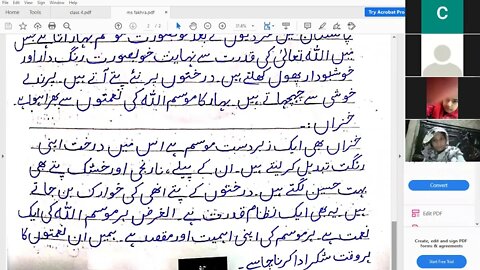 class 4.pdf
ms fakhra.pdf
2 / 2
میں اللہ تعالیٰ کی قدرت سے نہایت خوبصورت رنگ دار اور
خوشبودار پھول کھلتے ہیں۔ درختوں پر نئے پتے آتے ہیں۔ پرندے
خوشی سے چہچہاتے ہیں۔ بہار کا موسم اللہ کی نعمتوں سے بھرا ہوا ہے۔
خزاں:۔
خزاں بھی ایک زبردست موسم ہے اس میں درخت اپنی
رنگت تبدیل کر لیتے ہیں۔ ان کے پیلے، نارنجی اور خشک پتے بھی
بہت حسین لگتے ہیں۔ درختوں کے پتے انھی کی خوراک بن جاتے
ہیں۔ یہ بھی ایک نظام قدرت ہے۔ الغرض ہر موسم اللہ کی ایک
نعمت ہے۔ ہر موسم کی اپنی اہمیت اور مقصد ہے۔ ہمیں ان نعمتوں کا
ہر وقت شکر ادا کرنا چاہیے۔
Try Acrobat Pro
C
Convert
Edit PDF
Create, edit and sign PDF
forms & agreements
Start Free Trial